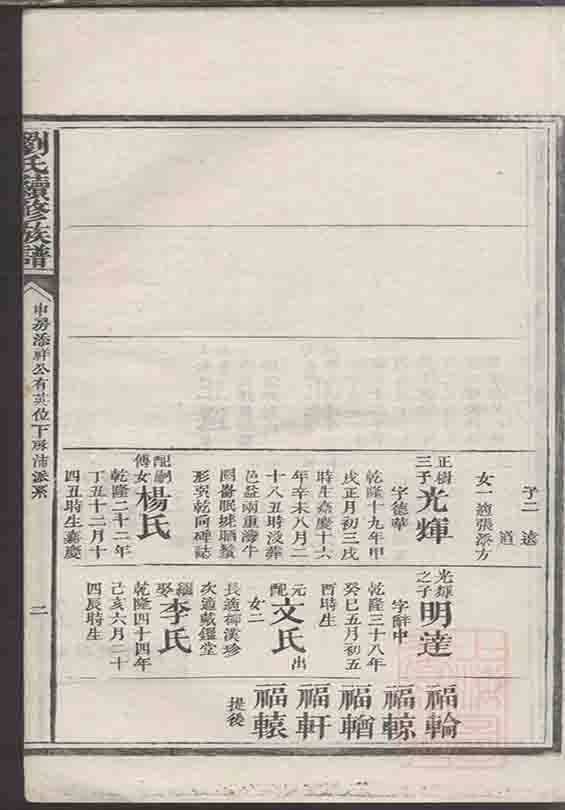 子二 遠
道
女一適張添方
正樹
三子
光輝
字德華
乾隆十九年甲
戌正月初三戌
時生嘉慶十六
年辛未八月二
十八丑時沒葬
邑益兩重灣牛
形癸乾向碑誌
配嗣
傅女
楊氏
乾隆二十二年
丁丑十二月十
四丑時生嘉慶
光輝
之子
明達
字辭中
乾隆三十八年
癸巳五月初五
酉時生
元
配
文氏
出
女二
長適柳漢珍
次適戴鑑堂
繼
娶
李氏
乾隆四十四年
己亥六月二十
四辰時生
福輪
福輬
福轓
福軒
福轅
提後
劉氏續修族譜
申房添祥公有英位下房沛派系
二